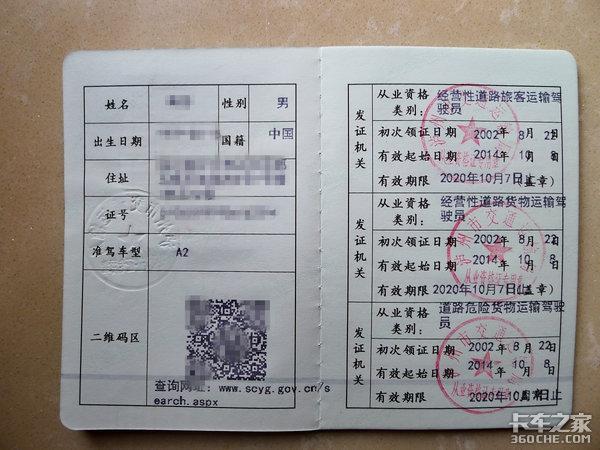 姓名 性别 男
出生日期 国籍 中国
住址
证号
准驾车型 A2
二维码区
查询网址: www.scyg.gov.cn/s
earch.aspx
发证机关
从业资格类别: 经营性道路旅客运输驾
驶员
初次领证日期 2002年 8月 22日
有效起始日期 2014年 10月 8日
有效期限 2020年10月7日止(盖章)
发证机关
从业资格类别: 经营性道路货物运输驾
驶员
初次领证日期 2002年 8月 22日
有效起始日期 2014年 10月 8日
有效期限 2020年10月7日止(盖章)
从业资格证专用章
发证机关
从业资格类别: 道路危险货物运输驾驶
员
初次领证日期 2002年 8月 22日
有效起始日期 2014年 10月 8日
有效期限
卡车之家
360CHE.COM